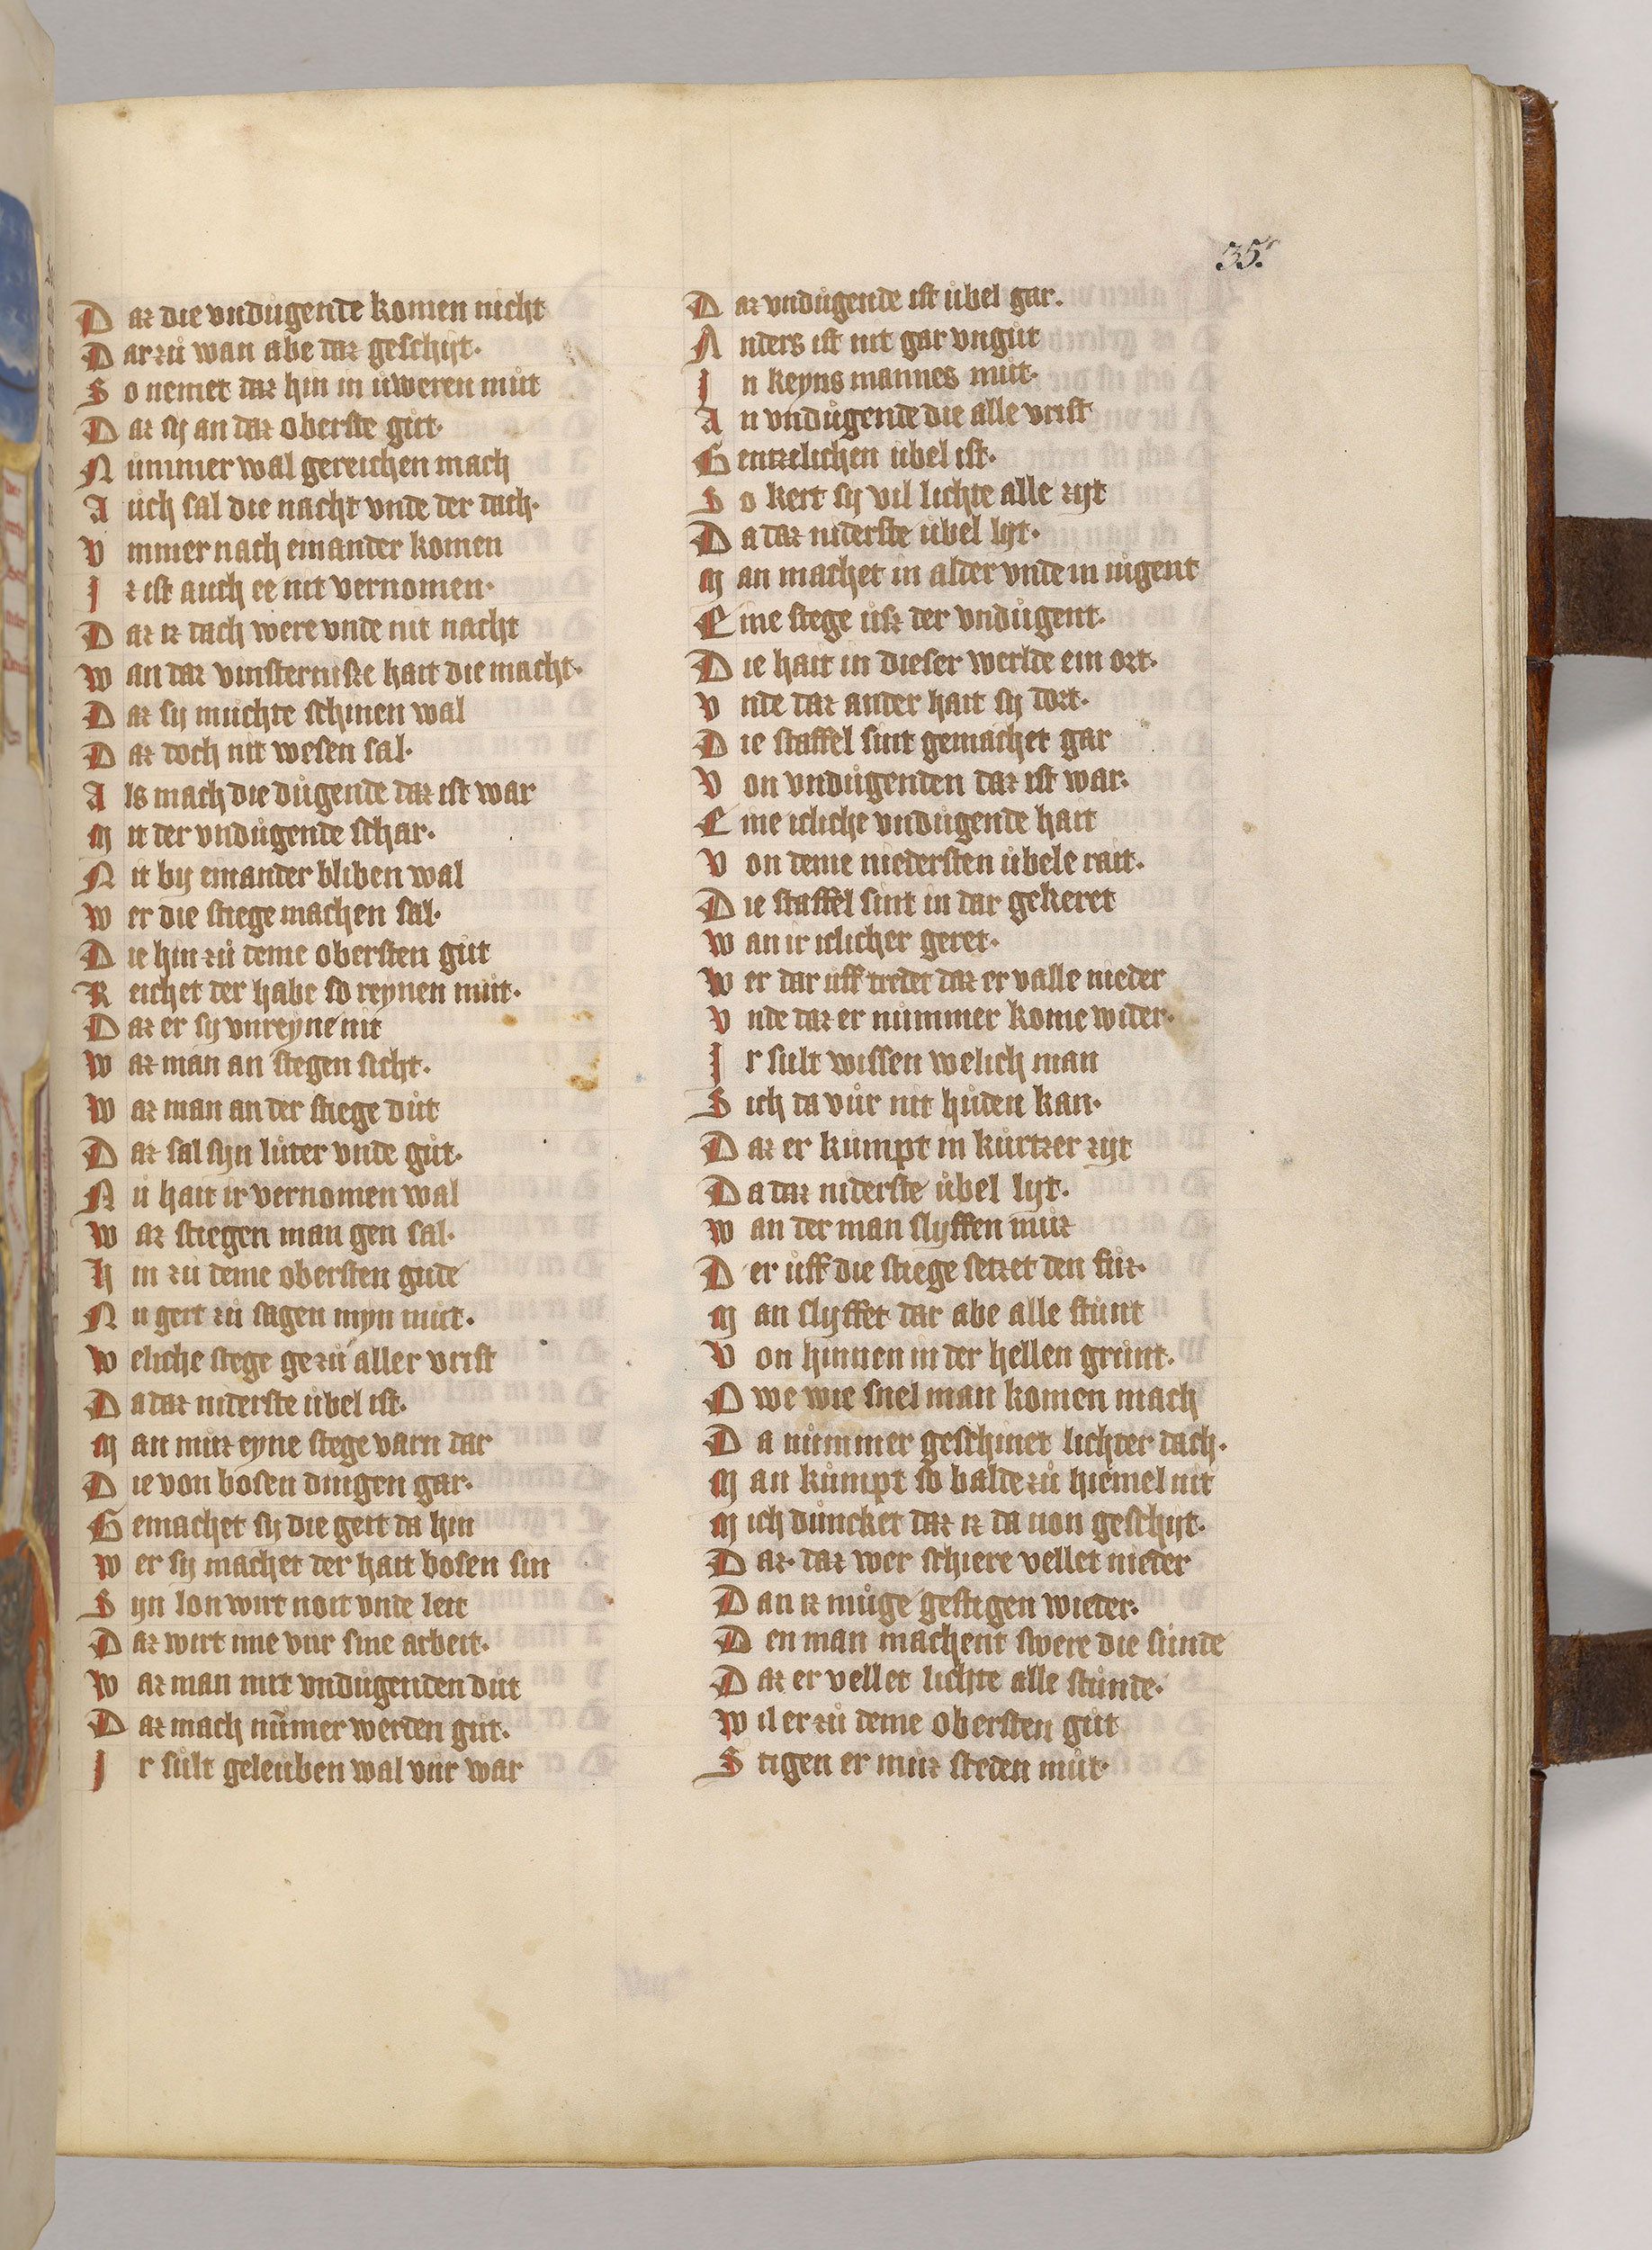 35.
Daz die vndugende komen nicht
Dar zů wan abe daz geschijt.
So nemet daz hin in uweren můt
Daz sy an daz oberste gůt.
Nummer wal gereichen mach
Auch sal die nacht vnde der dach.
Vmmer nach einander komen
Iz ist auch ee nit vernomen.
Daz iz dach were vnde nit nacht
Wan daz vinsternisze hait die macht.
Daz sy muchte schinen wal
Daz doch nit wesen sal.
Als mach die dugende daz ist war
Mit der vndůgende schar.
Nit by einander bliben wal
Wer die stiege machen sal.
Die hin zů deme obersten gůt
Reichet der habe so reynen můt.
Daz er sy vnreyne nit
Waz man an stegen sicht.
Waz man an der stiege důt
Daz sal syn luter vnde gůt.
Nů hait ir vernomen wal
Waz stiegen man gen sal.
Hin zu deme obersten gude
Nu gert zů sagen myn můt.
Weliche stege ge zů aller vrist
Da daz niderste ubel ist.
Man můz eyne stege varn dar
Die von bosen dingen gar.
Gemachet sy die geit da hin
Wer sy machet der hait bosen sin
Syn lon wirt noit vnde leit
Daz wirt ime vur sine arbeit.
Waz man mit vndůgenden důt
Daz mach nům̄er werden gůt.
Ir sult geleuben wal vur war
Daz vndůgende ist ůbel gar.
Anders ist nit gar vngůt
In keyns mannes můt.
An vndůgende die alle vrist
Gentzelichen ubel ist.
So kert sy vil lichte alle zijt
Da daz niderste ubel lijt.
Man machet in alder vnde in iugent
Eine stege ůsz der vndůgent.
Die hait in dieser werlde ein ort.
Vnde daz ander hait sy dort.
Die staffel sint gemachet gar
Von vndůgenden daz ist war.
Eine icliche vndůgende hait
Von deme niedersten ůbele rait.
Die staffel sint in dar gekeret
Wan ir iclicher geret.
Wer dar uff tredet daz er valle nieder
Vnde daz er nummer kome wider.
Ir sult wissen welich man
Sich da vůr nit hůden kan.
Daz er kůmpt in kůrtzer zijt
Da daz niderste ůbel lijt.
Wan der man slyffen můz
Der ůff die stiege setzet den fůz.
Man slyffet dar abe alle stunt
Von hinnen in der hellen grunt.
Owe wie snel man komen mach
Da nummer geschinet lichter dach.
Man kůmpt so balde zů hiemel nit
Mich důncket daz iz da uon geschijt.
Daz. daz wer schiere vellet nieder
Dan iz můge gestigen wieder.
Den man machent swere die sunde
Daz er vellet lichte alle stunde.
Wil er zů deme obersten gůt
Stigen er můz steden můt.